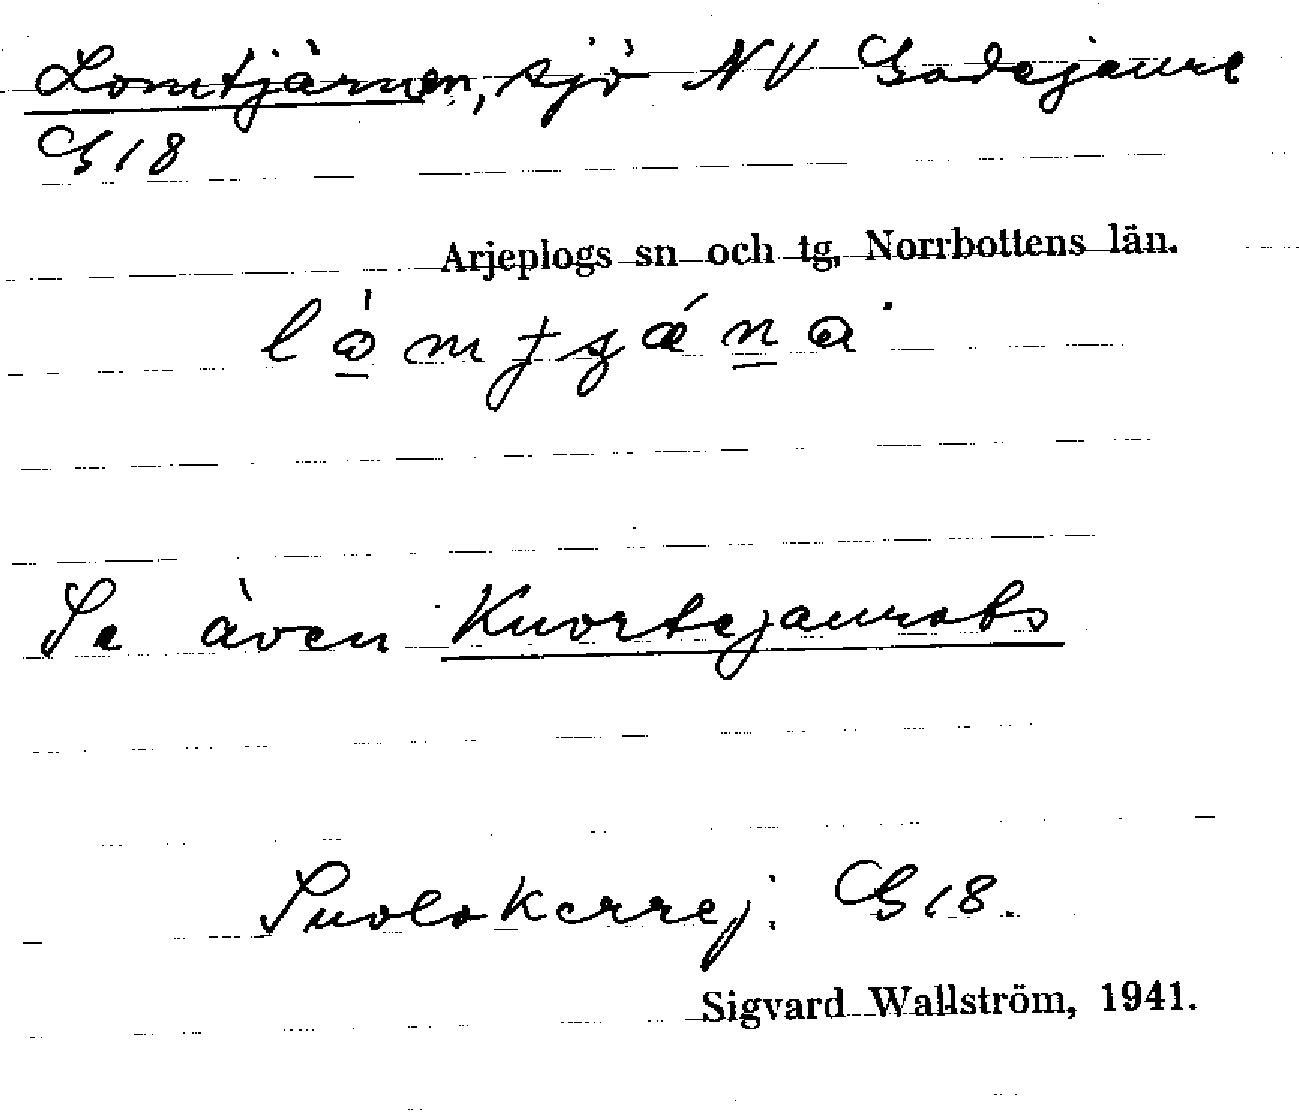 Lomtjärnen, sjö NV Gadejaure
G 18
Arjeplogs sn och tg, Norrbottens län.
Se även Kuortejaurats
Suolokerrej: G 18.
Sigvard Wallström, 1941.